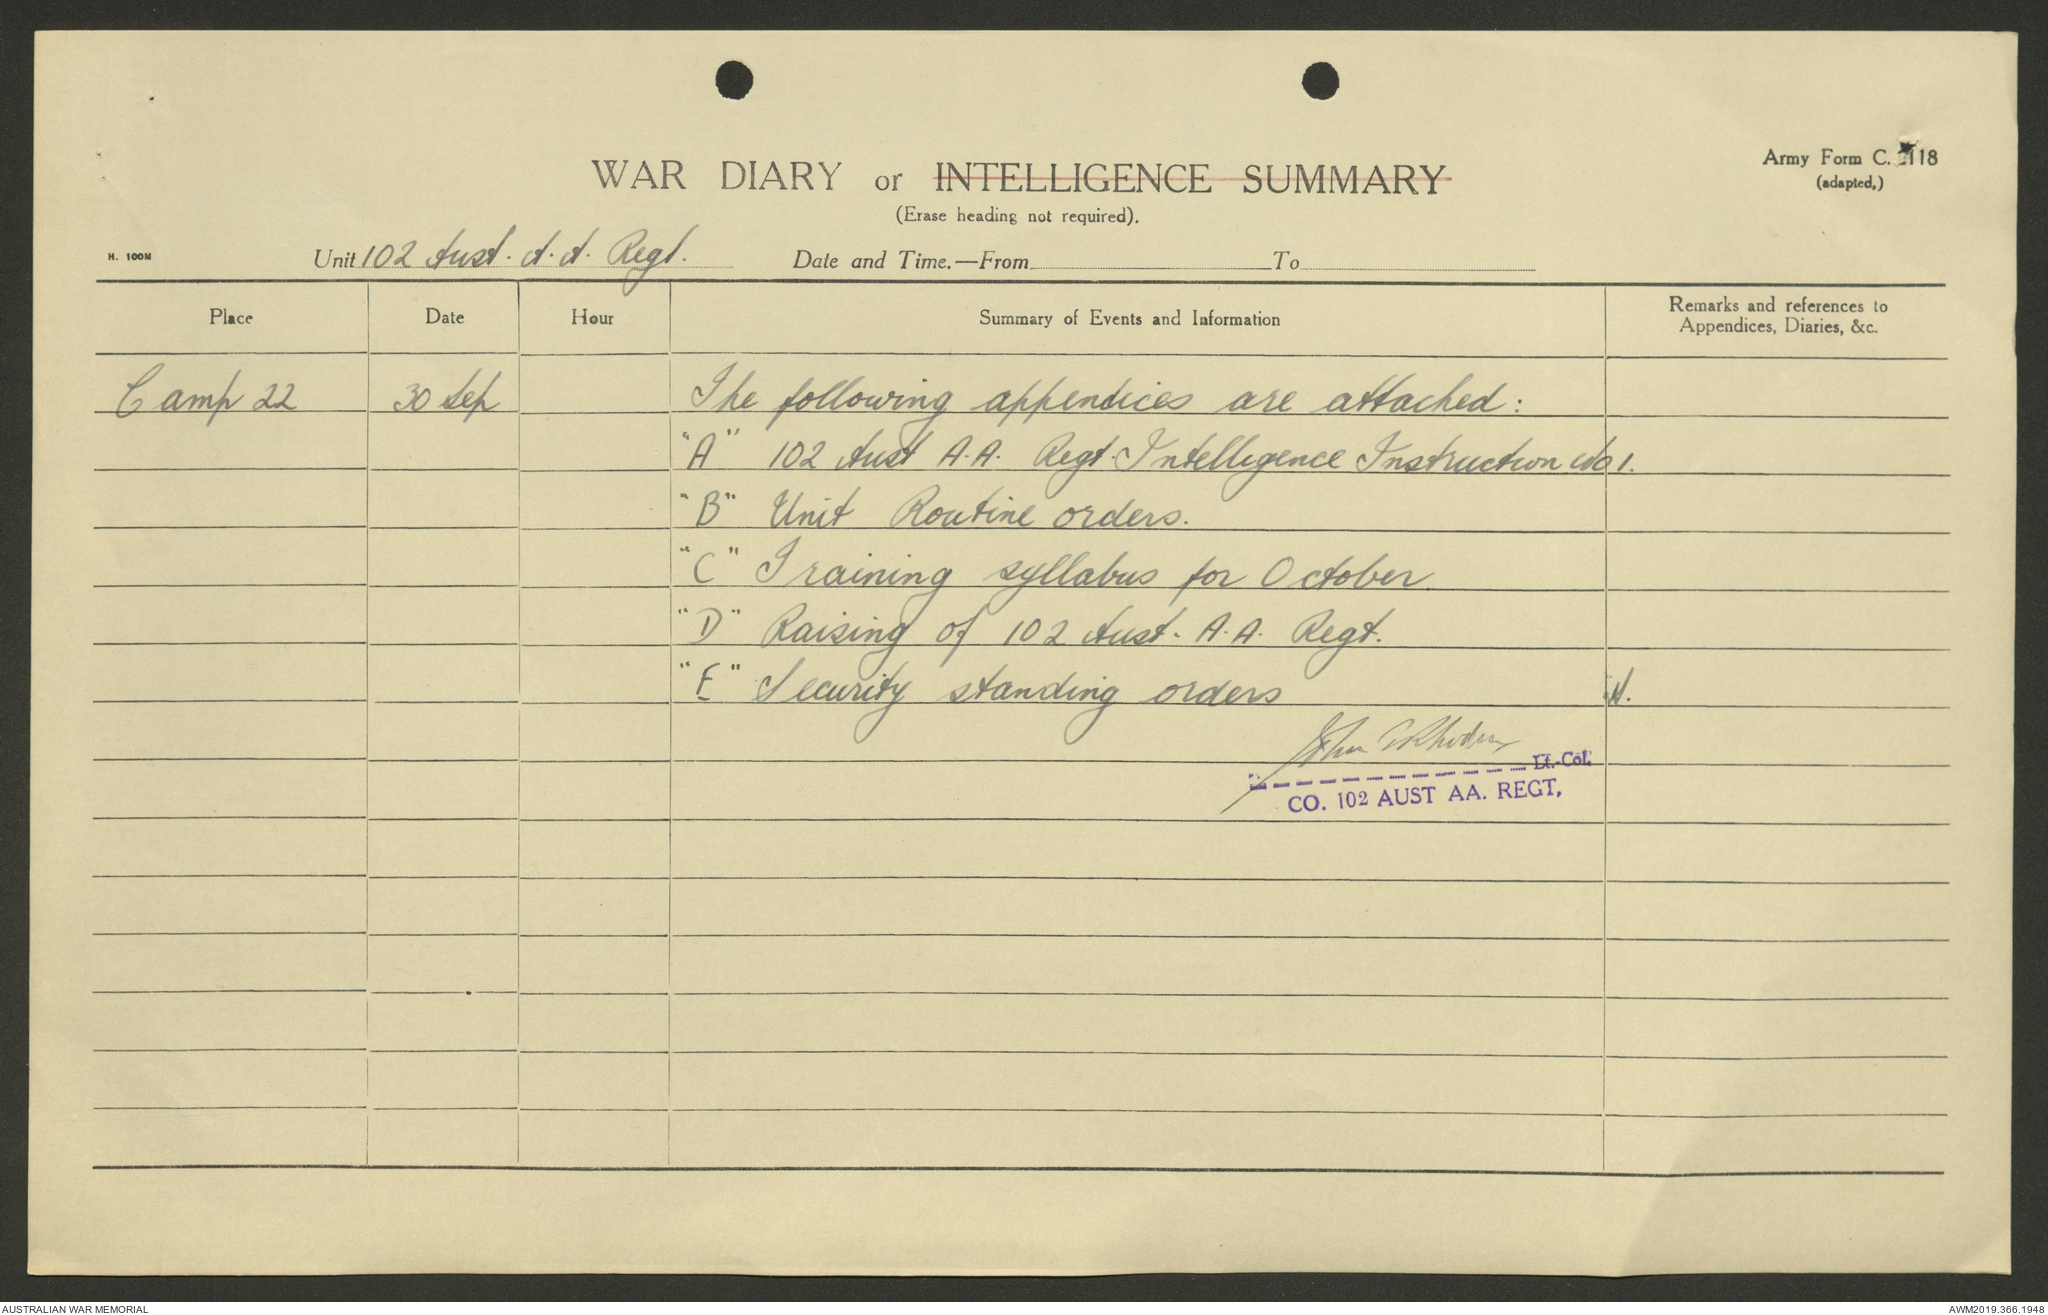 WAR DIARY or INTELLIGENCE SUMMARY
Army Form C. 118
(adapted.)
(Erase heading not required).
H. 100M
Unit 102 Aust. A.A. Regt. Date and Time.—From To
Place Date Hour Summary of Events and Information Remarks and references to
Appendices, Diaries, &c.
Camp 22 30 Sep The following appendices are attached:
"A" 102 Aust A.A. Regt. Intelligence Instruction No 1.
"B" Unit Routine orders.
"C" Training syllabus for October.
"D" Raising of 102 Aust. A.A. Regt.
"E" Security standing orders
John Rhoden
Lt.-Col.
CO. 102 AUST AA. REGT,
AUSTRALIAN WAR MEMORIAL
AWM2019.366.1948